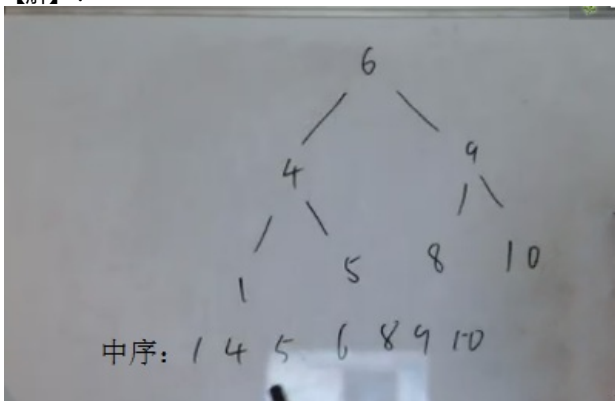 6
4 9
1 5 8 10
中序：1 4 5 6 8 9 10